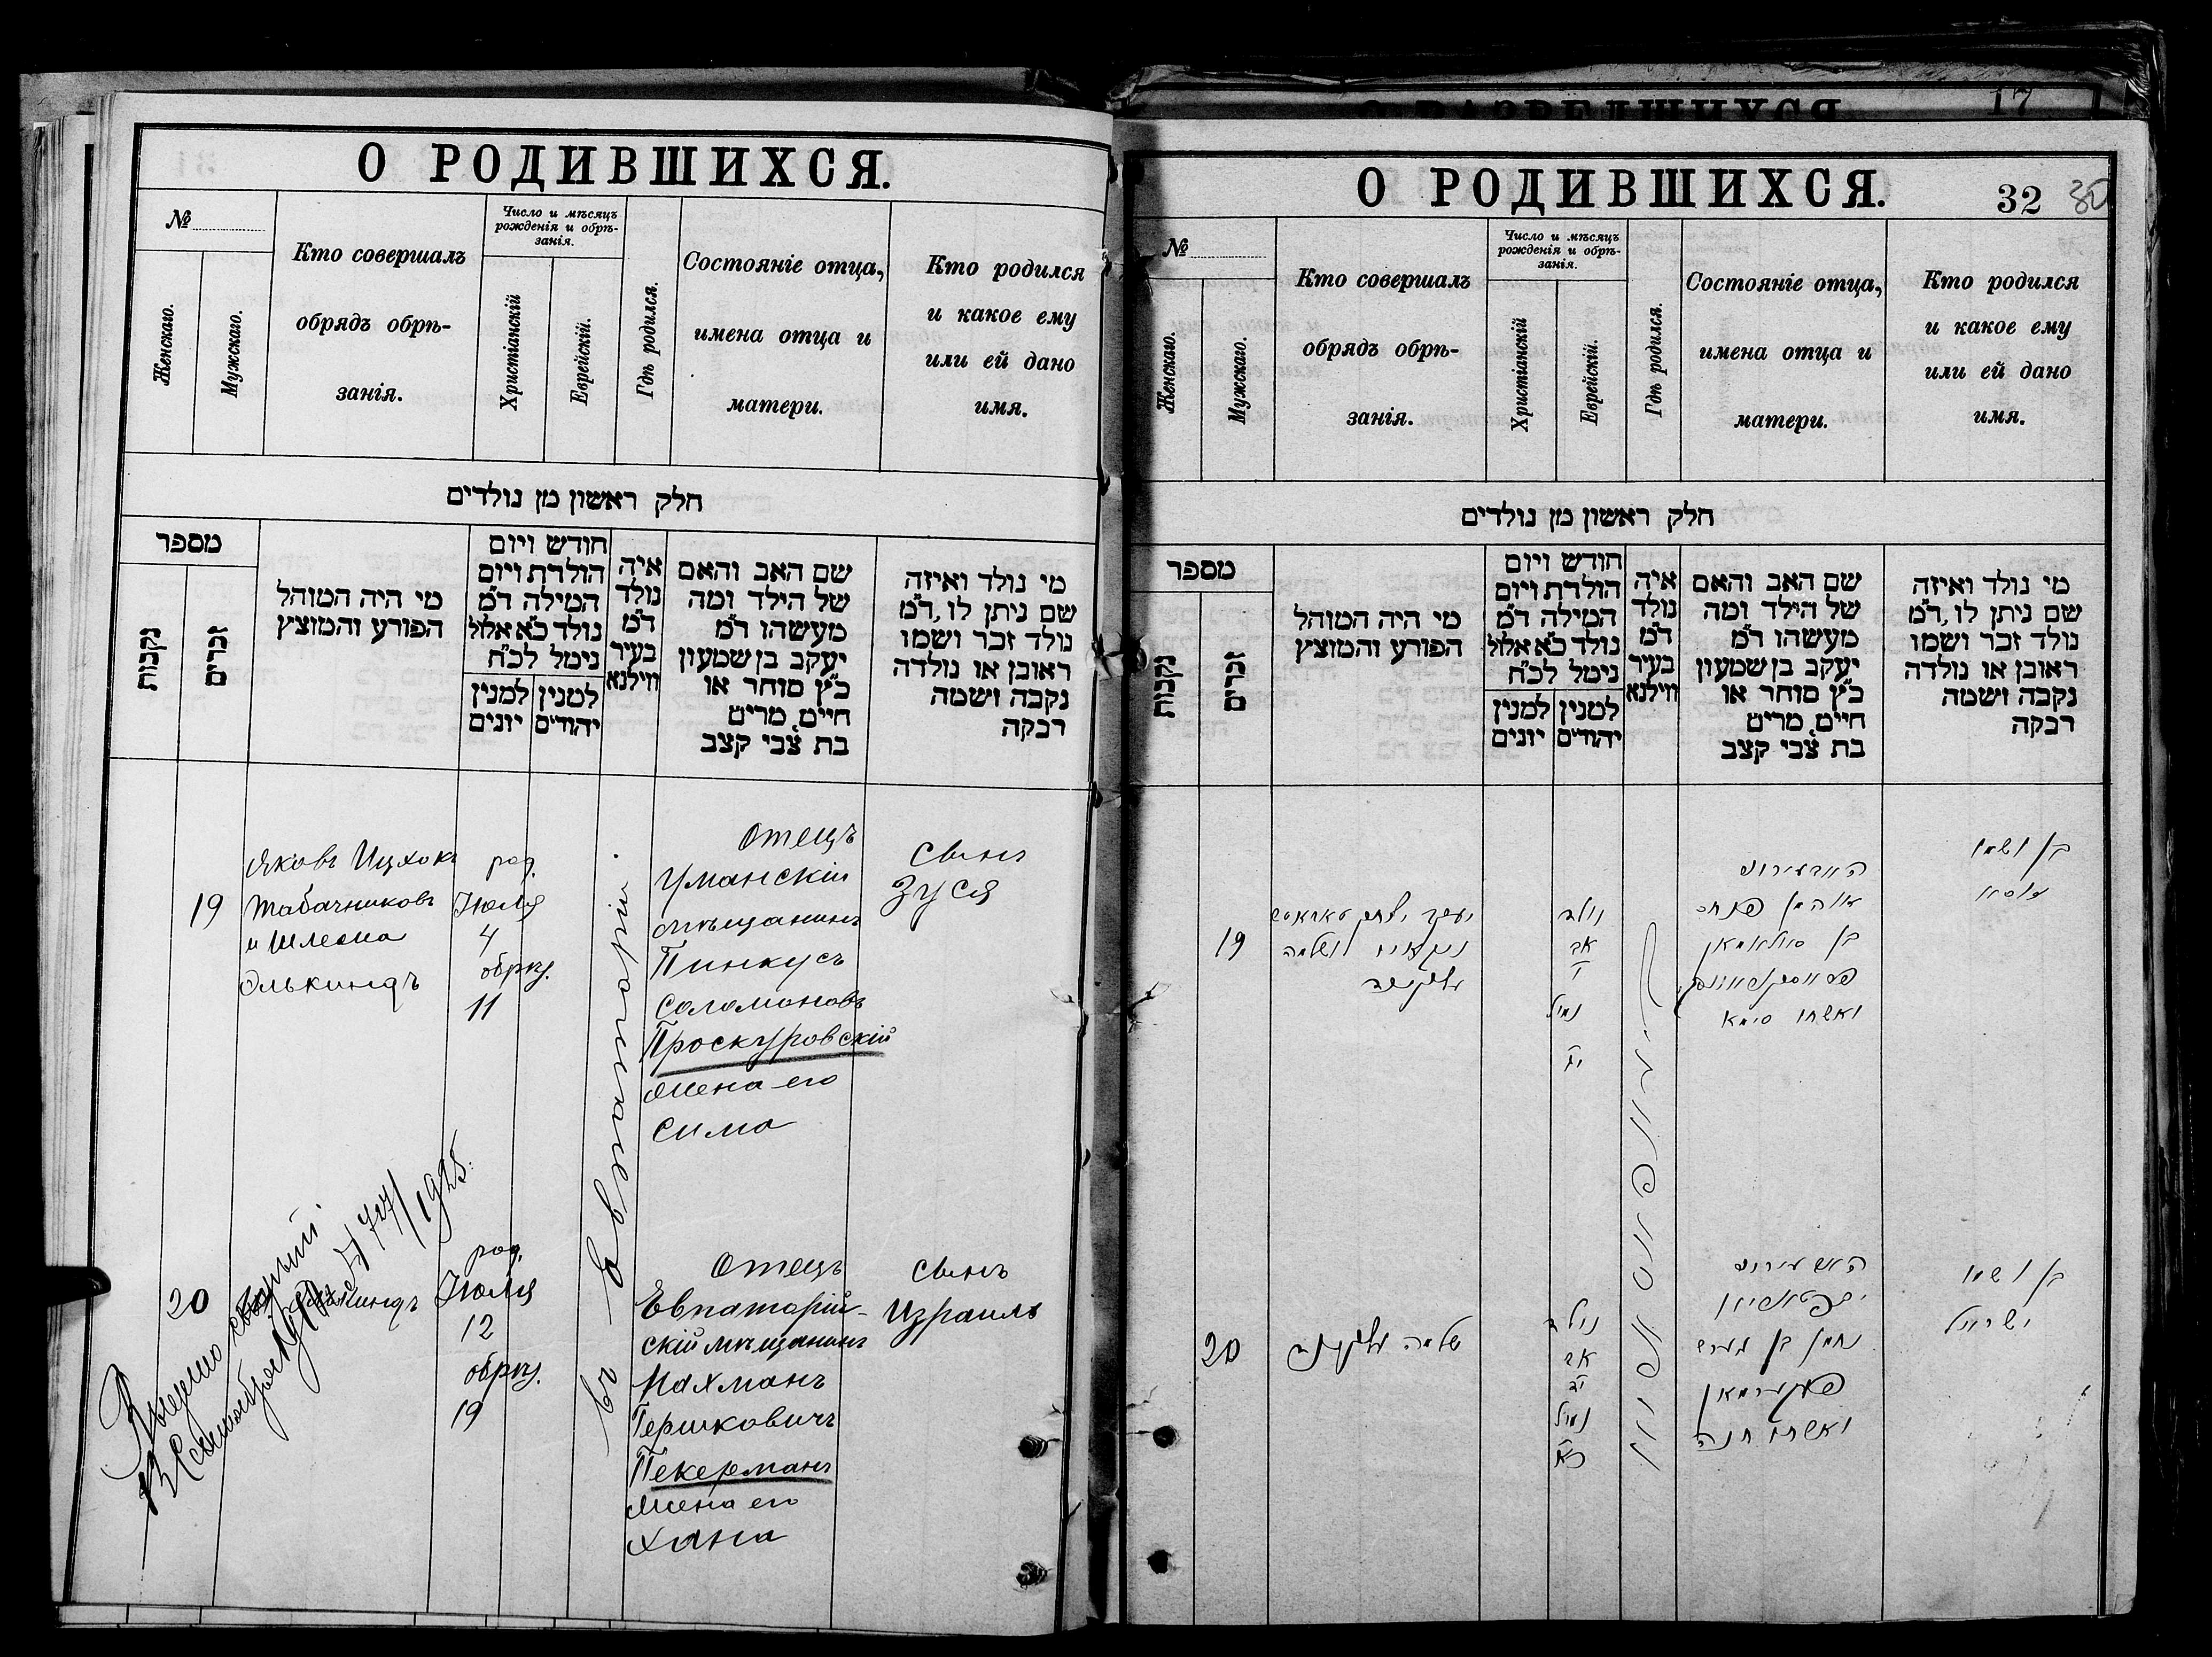 О РОДИВШИХСЯ.
№
Женскаго.
Мужскаго.
Кто совершалъ
обрядъ обрѣ-
занія.
Число и мѣсяцъ
рожденія и обрѣ-
занія.
Христіанскій
Еврейскій.
Гдѣ родился.
Состояніе отца,
имена отца и
матери.
Кто родился
и какое ему
или ей дано
имя.
חלק ראשון מן נולדים
מספר
נקבות
זכרים
מי היה המוהל
הפורע והמוצץ
חודש ויום
הולדת ויום
המילה ד״מ
נולד כ״א אלול
נימל לכ״ח
למנין
יונים
למנין
יהודים
איה
נולד
ד״מ
בעיר
ווילנא
שם האב והאם
של הילד ומה
מעשהו ד״מ
יעקב בן שמעון
כ״ץ סוחר או
חיים, מרים
בת צבי קצב
מי נולד ואיזה
שם ניתן לו, ד״מ
נולד זכר ושמו
ראובן או נולדה
נקבה ושמה
רבקה
19
Яковъ Ицхокъ
Табачниковъ
и Шлема
Элькиндъ
род.
Іюля
4
обрѣз.
11
въ Евпаторіи.
Отецъ
Уманскій
мѣщанинъ
Пинкусъ
Соломоновъ
Проскуровскій
жена его
Сима
Сынъ
Зуся
20
Элькиндъ
род.
Іюля
12
обрѣз.
19
Отецъ
Евпаторій-
скій мѣщанинъ
Нахманъ
Гершковичъ
Пекерманъ
жена его
Хана
Сынъ
Израиль
1925
17
О РОДИВШИХСЯ.
32
30
№
Женскаго.
Мужскаго.
Кто совершалъ
обрядъ обрѣ-
занія.
Число и мѣсяцъ
рожденія и обрѣ-
занія.
Христіанскій
Еврейскій.
Гдѣ родился.
Состояніе отца,
имена отца и
матери.
Кто родился
и какое ему
или ей дано
имя.
חלק ראשון מן נולדים
מספר
נקבות
זכרים
מי היה המוהל
הפורע והמוצץ
חודש ויום
הולדת ויום
המילה ד״מ
נולד כ״א אלול
נימל לכ״ח
למנין
יונים
למנין
יהודים
איה
נולד
ד״מ
בעיר
ווילנא
שם האב והאם
של הילד ומה
מעשהו ד״מ
יעקב בן שמעון
כ״ץ סוחר או
חיים, מרים
בת צבי קצב
מי נולד ואיזה
שם ניתן לו, ד״מ
נולד זכר ושמו
ראובן או נולדה
נקבה ושמה
רבקה
19
נולד
אב
נימול
ואשתו סימא
בן ושמו
20
שלמה עלקינד
נולד
אב
נימול
נחמן בן הערש
פעקערמאן
ואשתו חנה
בן ושמו
ישראל